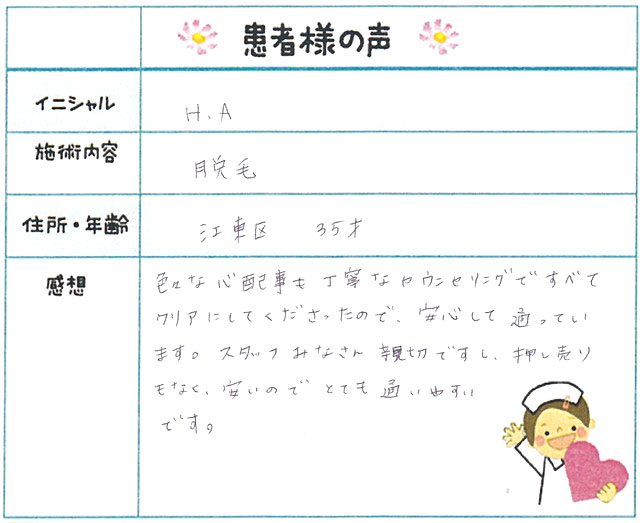 患者様の声
イニシャル H.A
施術内容 脱毛
住所・年齢 江東区 35才
感想
色々な心配事も丁寧なカウンセリングですべて
クリアにしてくださったので、安心して通ってい
ます。スタッフみなさん親切ですし、押し売り
もなく、安いのでとても通いやすい
です。